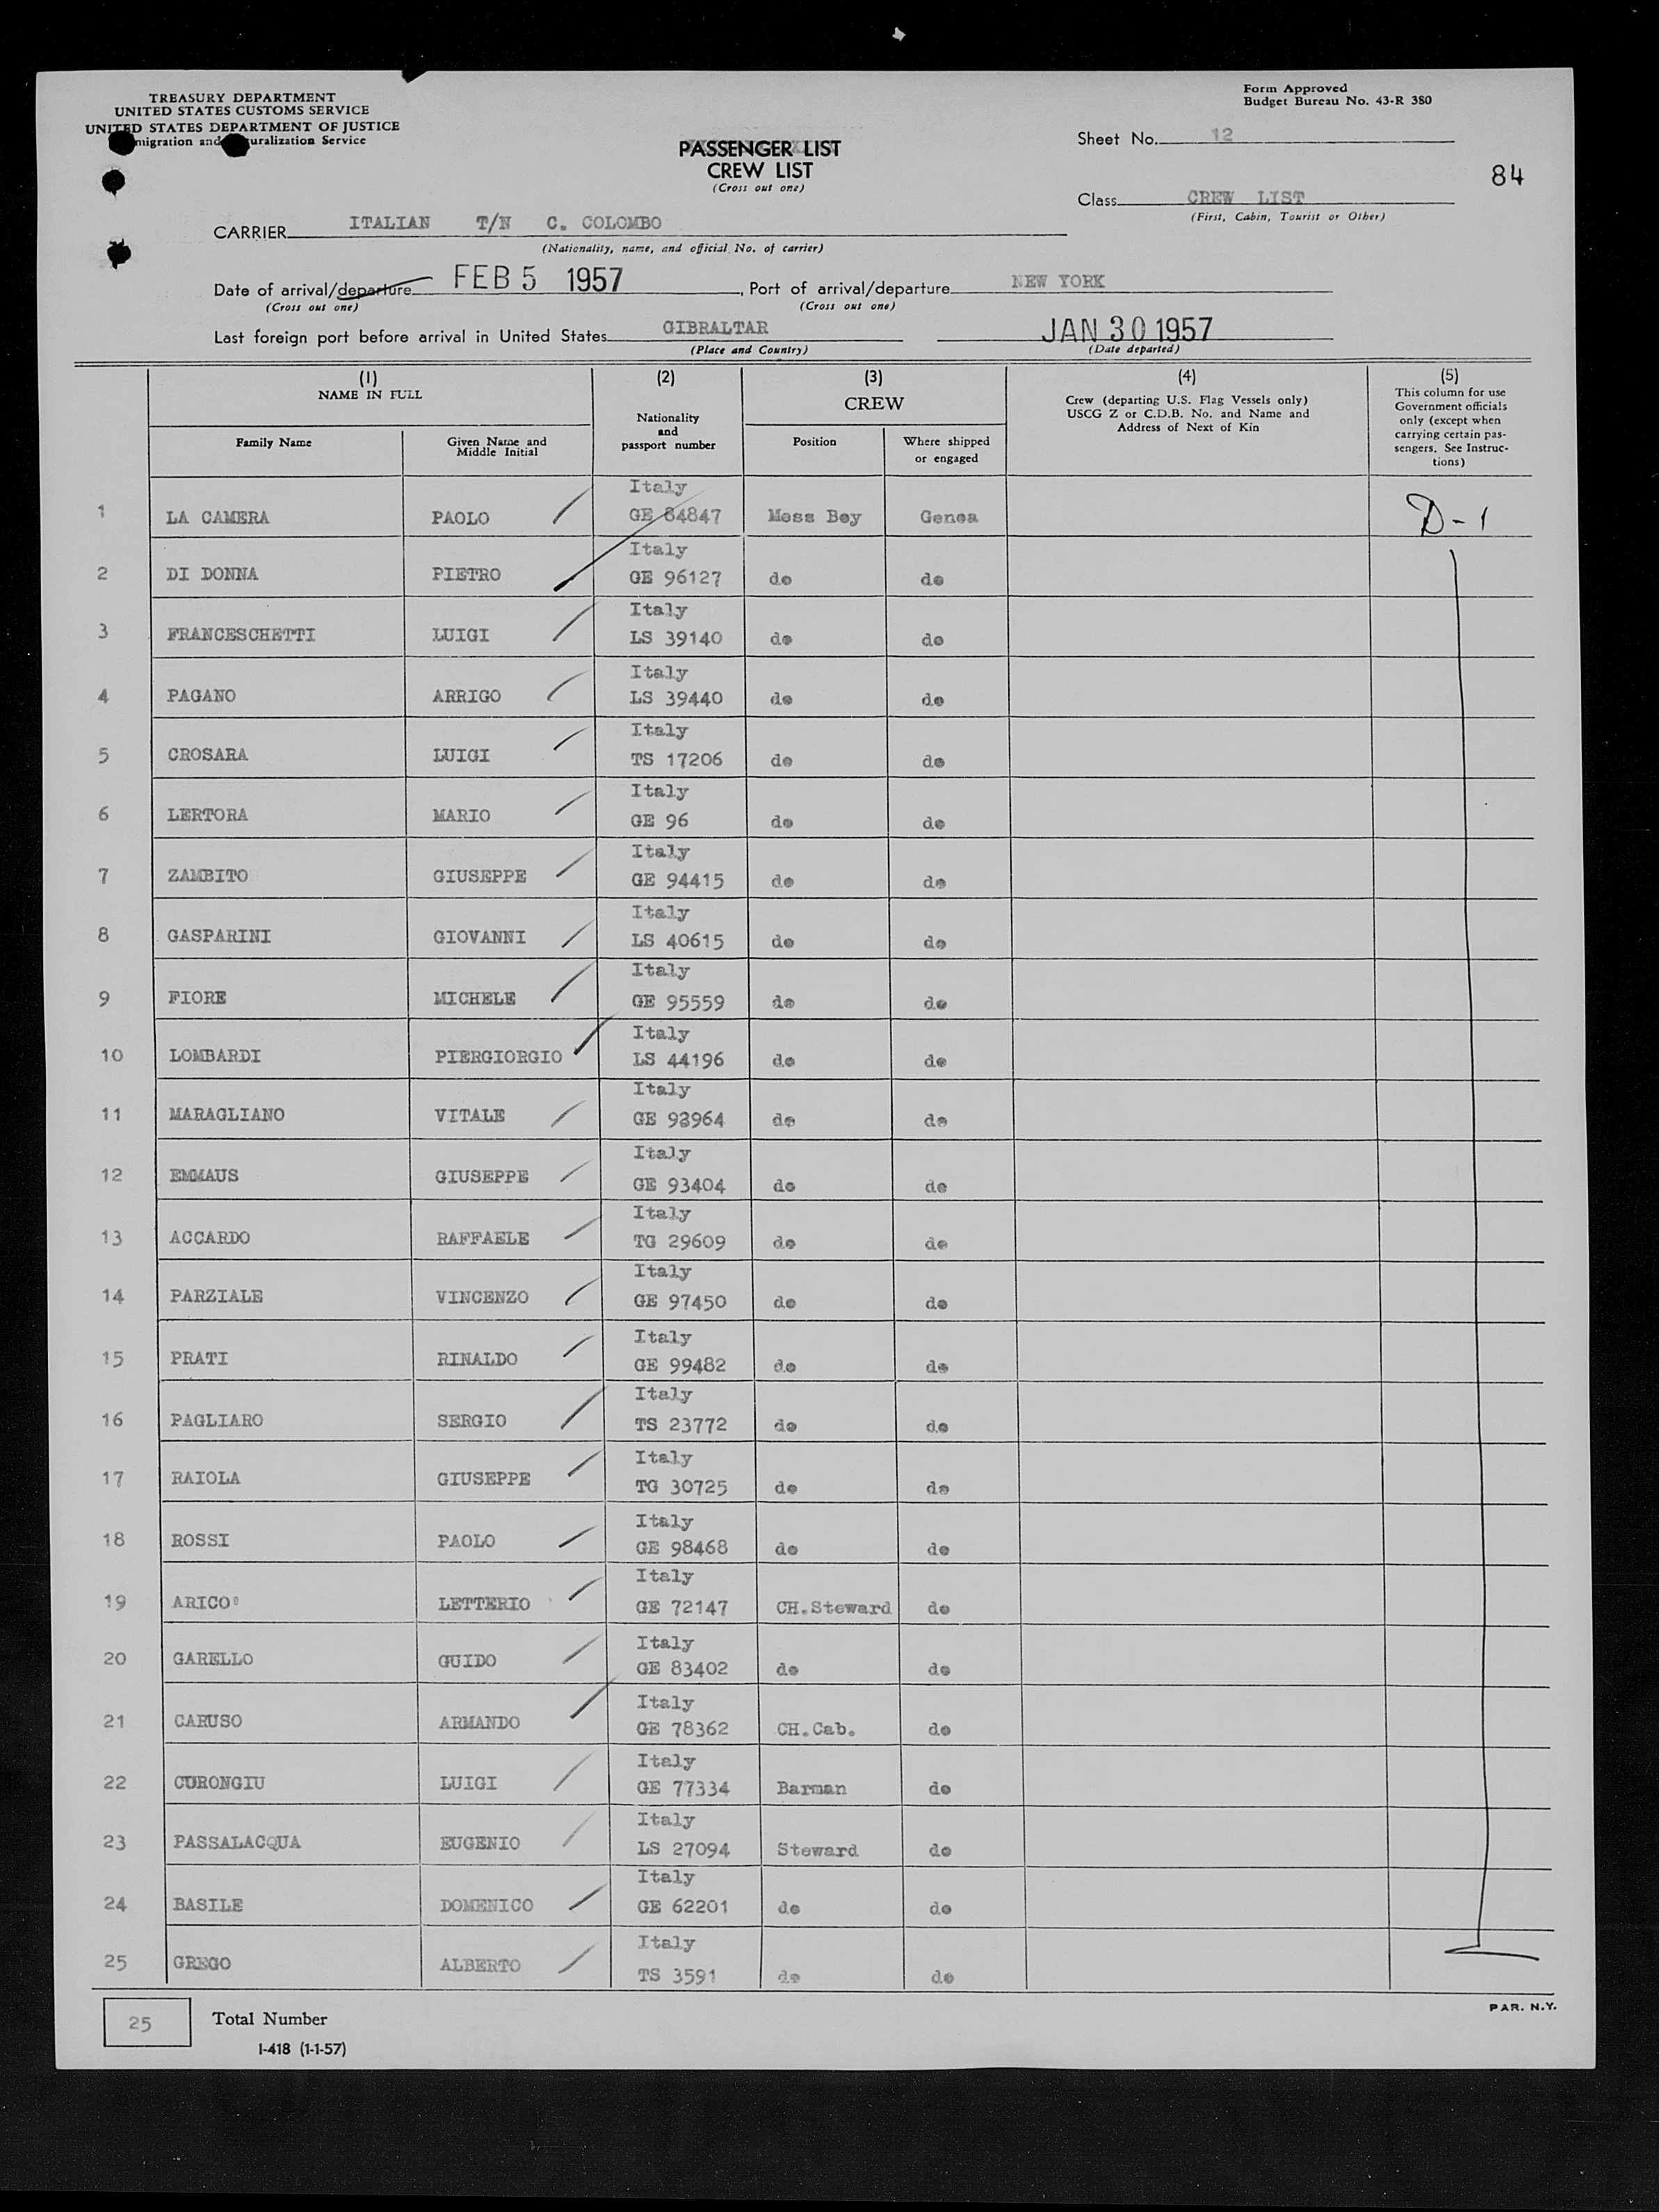 TREASURY DEPARTMENT
UNITED STATES CUSTOMS SERVICE
UNITED STATES DEPARTMENT OF JUSTICE
migration and uralization Service
Form Approved
Budget Bureau No. 43-R 380
PASSENGER LIST
CREW LIST
(Cross out one)
Sheet No. 12
84
Class CREW LIST
(First, Cabin, Tourist or Other)
CARRIER ITALIAN T/N C. COLOMBO
(Nationality, name, and official No. of carrier)
Date of arrival/departure FEB 5 1957, Port of arrival/departure NEW YORK
(Cross out one) (Cross out one)
Last foreign port before arrival in United States GIBRALTAR JAN 30 1957
(Place and Country) (Date departed)
(1) (2) (3) (4) (5)
NAME IN FULL
Family Name
Given Name and
Middle Initial
Nationality
and
passport number
CREW
Position
Where shipped
or engaged
Crew (departing U.S. Flag Vessels only)
USCG Z or C.D.B. No. and Name and
Address of Next of Kin
This column for use
Government officials
only (except when
carrying certain pas-
sengers. See Instruc-
tions)
Italy
1 LA CAMERA PAOLO GE 84847 Mess Boy Genoa D-1
Italy
2 DI DONNA PIETRO GE 96127 do do
Italy
3 FRANCESCHETTI LUIGI LS 39140 do do
Italy
4 PAGANO ARRIGO LS 39440 do do
Italy
5 CROSARA LUIGI TS 17206 do do
Italy
6 LERTORA MARIO GE 96 do do
Italy
7 ZAMBITO GIUSEPPE GE 94415 do do
Italy
8 GASPARINI GIOVANNI LS 40615 do do
Italy
9 FIORE MICHELE GE 95559 do do
Italy
10 LOMBARDI PIERGIORGIO LS 44196 do do
Italy
11 MARAGLIANO VITALE GE 93964 do do
Italy
12 EMMAUS GIUSEPPE GE 93404 do do
Italy
13 ACCARDO RAFFAELE TG 29609 do do
Italy
14 PARZIALE VINCENZO GE 97450 do do
Italy
15 PRATI RINALDO GE 99482 do do
Italy
16 PAGLIARO SERGIO TS 23772 do do
Italy
17 RAIOLA GIUSEPPE TG 30725 do do
Italy
18 ROSSI PAOLO GE 98468 do do
Italy
19 ARICO' LETTERIO GE 72147 CH.Steward do
Italy
20 GARELLO GUIDO GE 83402 do do
Italy
21 CARUSO ARMANDO GE 78362 CH.Cab. do
Italy
22 CURONGIU LUIGI GE 77334 Barman do
Italy
23 PASSALACQUA EUGENIO LS 27094 Steward do
Italy
24 BASILE DOMENICO GE 62201 do do
Italy
25 GREGO ALBERTO TS 3591 do do
25 Total Number
PAR. N.Y.
I-418 (1-1-57)